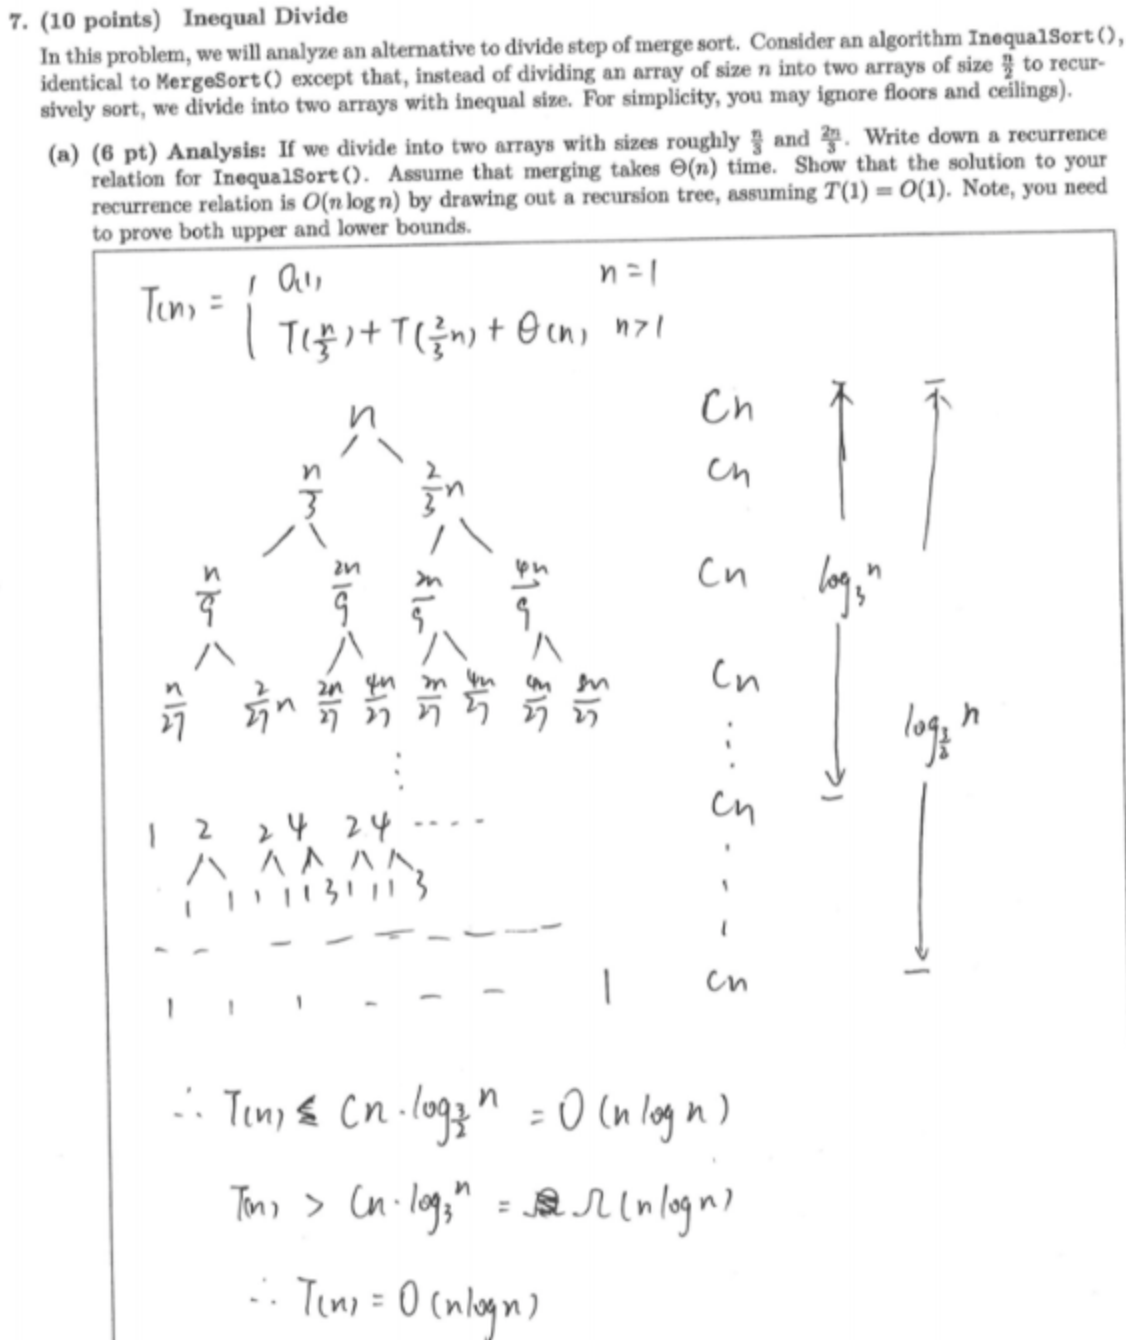 7. (10 points) Inequal Divide
In this problem, we will analyze an alternative to divide step of merge sort. Consider an algorithm InequalSort(),
identical to MergeSort() except that, instead of dividing an array of size n into two arrays of size n/2 to recur-
sively sort, we divide into two arrays with inequal size. For simplicity, you may ignore floors and ceilings).
(a) (6 pt) Analysis: If we divide into two arrays with sizes roughly n/3 and 2n/3. Write down a recurrence
relation for InequalSort(). Assume that merging takes Θ(n) time. Show that the solution to your
recurrence relation is O(n log n) by drawing out a recursion tree, assuming T(1) = O(1). Note, you need
to prove both upper and lower bounds.
T(n) = { O(1) n = 1
T(n/3) + T(2/3 n) + Θ(n) n > 1
n Cn
n/3 2/3 n Cn
n/9 2n/9 2n/9 4n/9 Cn log₃ n
n/27 2/27 n 2n/27 4n/27 2n/27 4n/27 4n/27 8n/27 Cn
⋮ ⋮ log_{3/2} n
1 2 2 4 2 4 ---- Cn
1 1 1 1 1 3 1 1 1 3
1 1 1 - - - 1 Cn
∴ T(n) ≤ Cn · log_{3/2} n = O(n log n)
T(n) > Cn · log₃ n = Ω(n log n)
∴ T(n) = O(n log n)